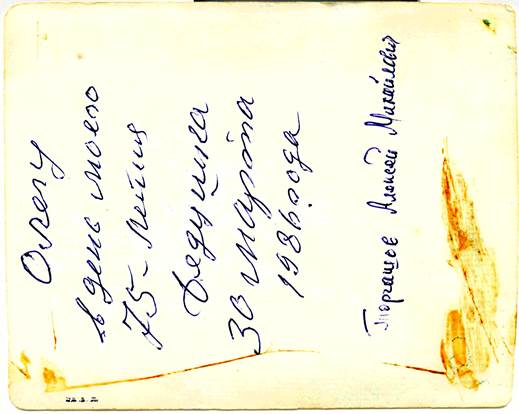 Олегу
в день моего
75-летия
Дедушка
30 марта
1986 года
Торгашов Алексей Михайлович